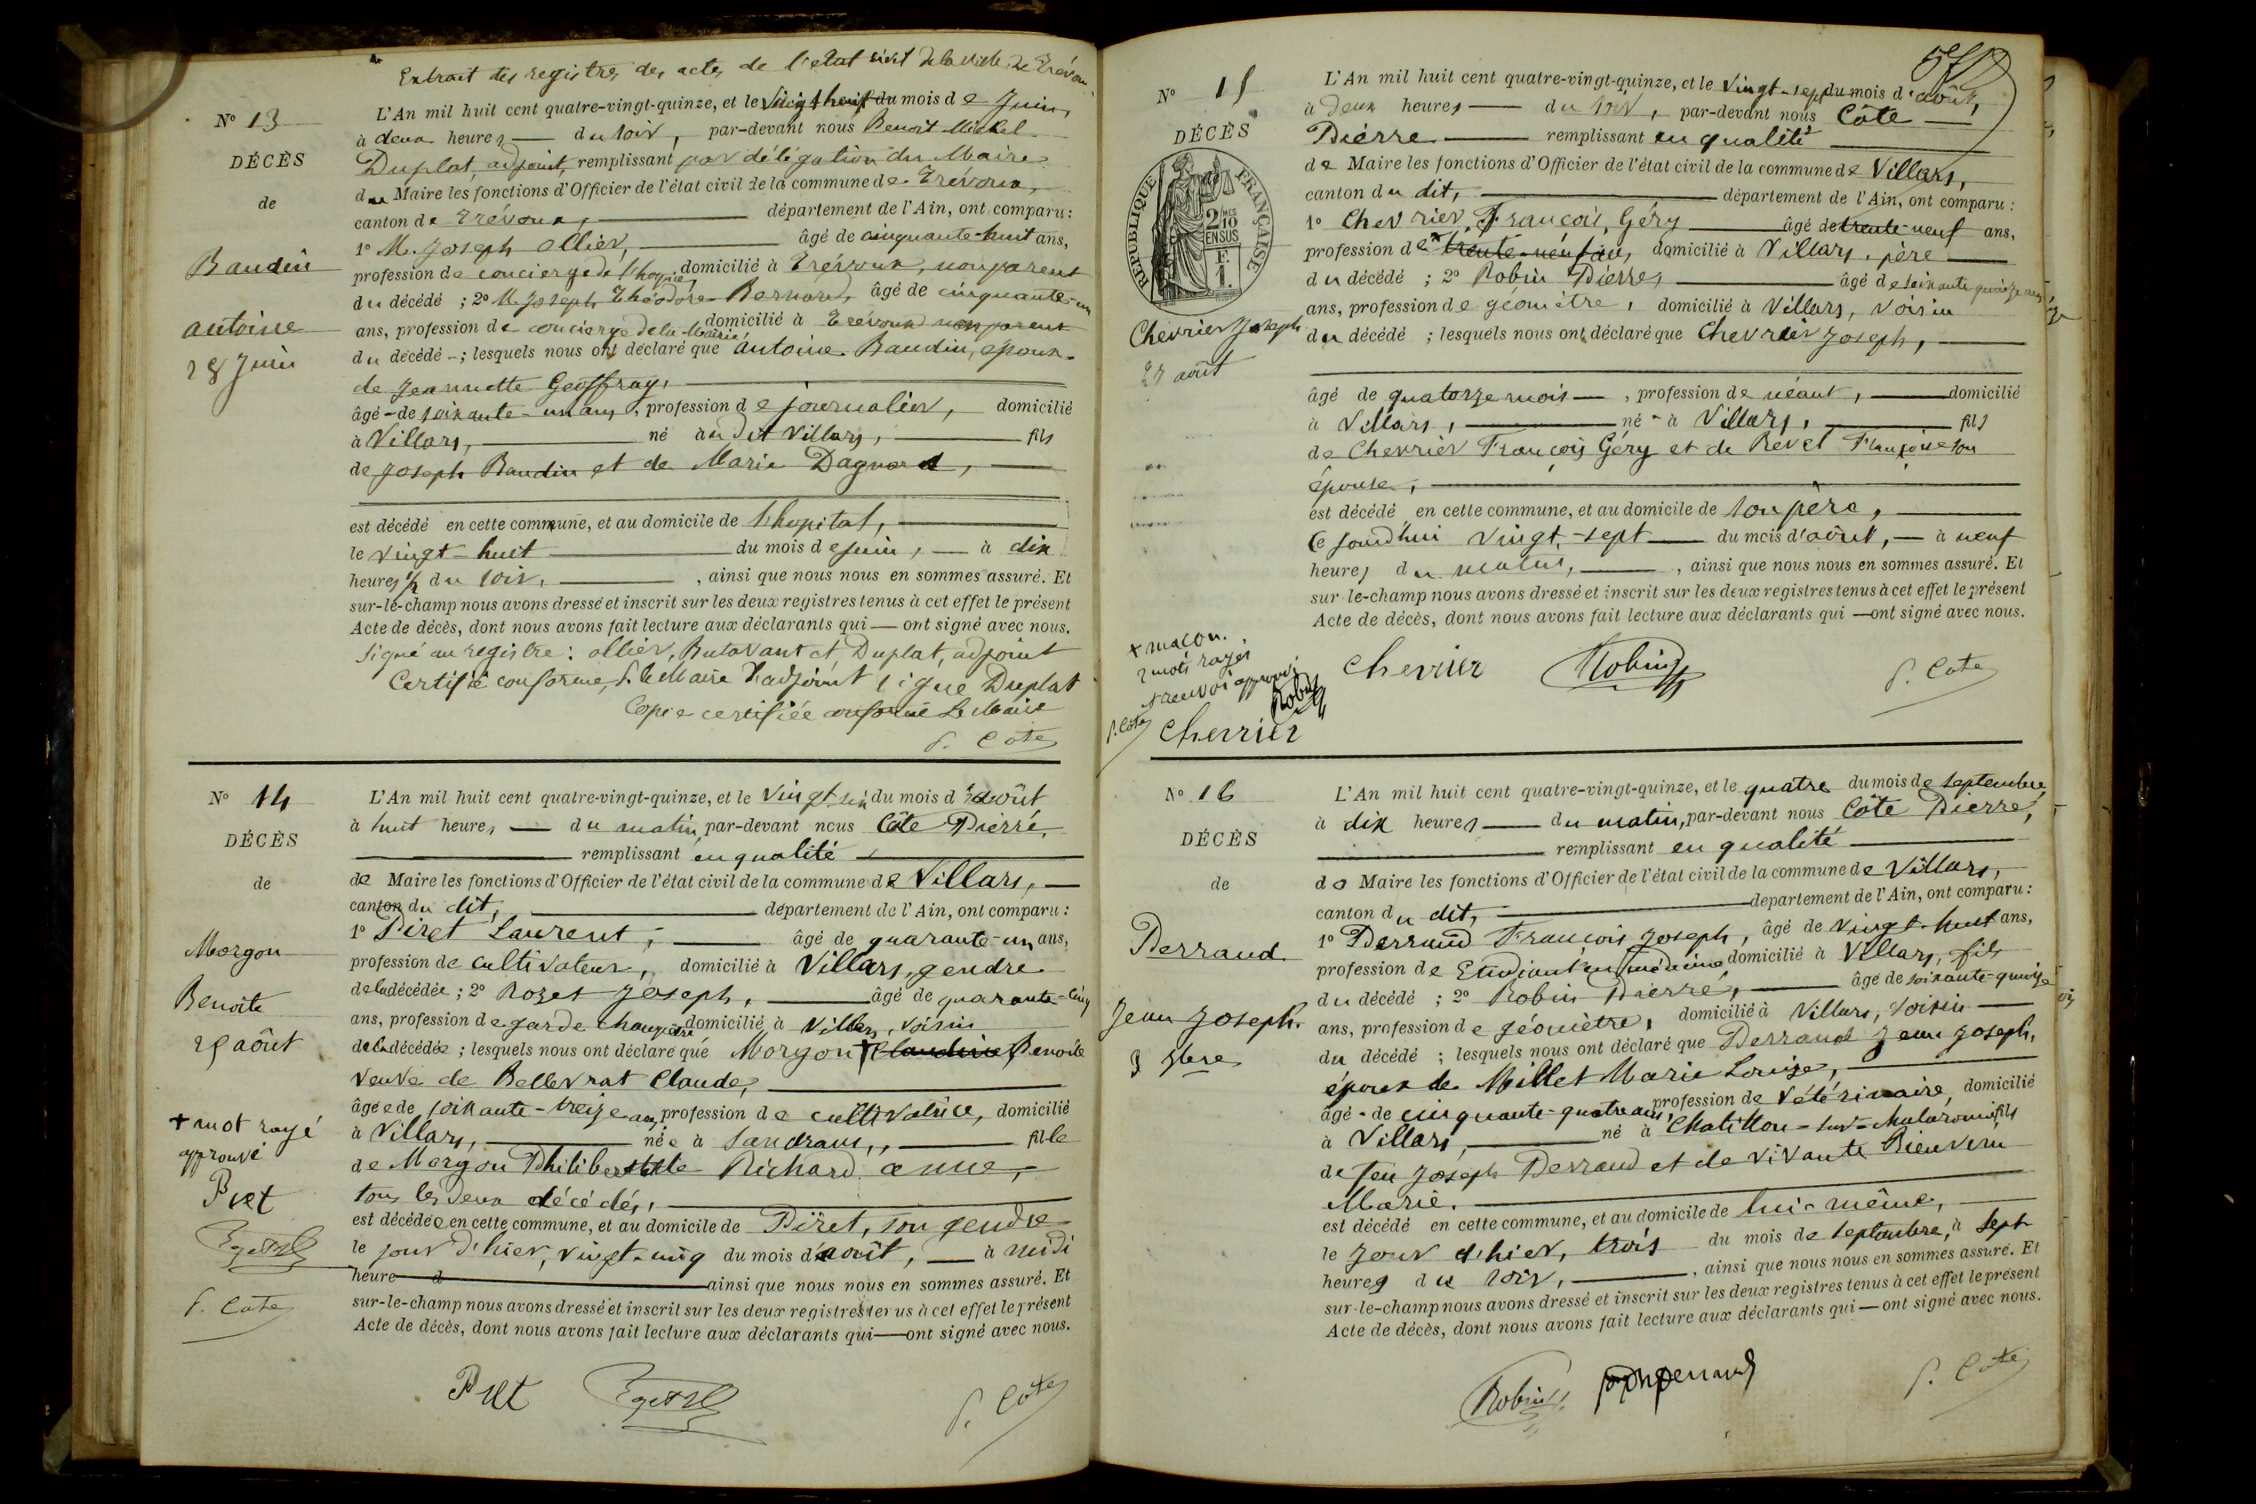 Extrait des registres des actes de l'état civil de la ville de Trévoux
N° 13
DÉCÈS
de
Baudin
Antoine
28 Juin
L'An mil huit cent quatre-vingt-quinze, et le vingt neuf du mois de Juin,
à deux heures — du soir, par-devant nous Benoit Michel
Duplat, adjoint, remplissant par délégation du Maire
du Maire les fonctions d'Officier de l'état civil de la commune de Trévoux,
canton de Trévoux, — département de l'Ain, ont comparu :
1° M. Joseph Ollier, — âgé de cinquante-huit ans,
profession de concierge de l'hospice, domicilié à Trévoux, non parent
du décédé ; 2° M. Joseph Théodore Bernard, âgé de cinquante-un
ans, profession de concierge de la Mairie domicilié à Trévoux non parent
du décédé ; lesquels nous ont déclaré que Antoine Baudin, époux
de Jeannette Geoffray,
âgé de soixante-un ans, profession de journalier, domicilié
à Villars, — né au dit Villars, — fils
de Joseph Baudin et de Marie
est décédé en cette commune, et au domicile de l'hopital,
le vingt-huit — du mois de juin, — à dix
heures ½ du soir, — , ainsi que nous nous en sommes assuré. Et
sur-le-champ nous avons dressé et inscrit sur les deux registres tenus à cet effet le présent
Acte de décès, dont nous avons fait lecture aux déclarants qui — ont signé avec nous.
Signé au registre : Ollier, et Duplat, adjoint
Certifié conforme, P. le Maire l'adjoint signé Duplat
Copie certifiée conforme Le Maire
P. Cote
N° 14
DÉCÈS
de
Morgon
Benoite
25 août
+ mot rayé
approuvé
Piret
P. Cote
L'An mil huit cent quatre-vingt-quinze, et le vingt-six du mois d'août
à huit heures — du matin, par-devant nous Côte Pierre,
— remplissant en qualité —
de Maire les fonctions d'Officier de l'état civil de la commune de Villars, —
canton du dit, — département de l'Ain, ont comparu :
1° Piret Laurent, — âgé de quarante-un ans,
profession de cultivateur, domicilié à Villars, gendre
de la décédée ; 2° Rozet Joseph, — âgé de quarante-cinq
ans, profession de garde champêtre domicilié à Villars, voisin
de la décédée ; lesquels nous ont déclaré que Morgon + Claudine Benoite
veuve de Bellevrat Claude,
âgée de soixante-treize ans, profession de cultivatrice, domicilié
à Villars, — née à Sandrans, — fille
de Morgon Philibert et de Richard Anne,
tous les deux décédés,
est décédée en cette commune, et au domicile de Piret, son gendre
le jour d'hier, vingt-cinq du mois d'août, — à midi
heure d — ainsi que nous nous en sommes assuré. Et
sur-le-champ nous avons dressé et inscrit sur les deux registres tenus à cet effet le présent
Acte de décès, dont nous avons fait lecture aux déclarants qui — ont signé avec nous.
Piret
P. Cote
N° 15
DÉCÈS
RÉPUBLIQUE FRANÇAISE
2/10 MES
EN SUS
F.
1.
Chevrier Joseph
27 août
L'An mil huit cent quatre-vingt-quinze, et le vingt-sept du mois d'août,
à deux heures — du soir, par-devant nous Côte —
Pierre — remplissant en qualité —
de Maire les fonctions d'Officier de l'état civil de la commune de Villars,
canton du dit, — département de l'Ain, ont comparu :
1° Chevrier, François, Géry — âgé de trente-neuf ans,
profession de + trente-neuf ans, domicilié à Villars, père —
du décédé ; 2° Robin Pierre, — âgé de soixante quinze ans
ans, profession de géomètre, domicilié à Villars, voisin
du décédé ; lesquels nous ont déclaré que Chevrier Joseph, —
âgé de quatorze mois — , profession de néant, — domicilié
à Villars, — né à Villars, — fils
de Chevrier François Géry et de Revel Françoise son
épouse,
est décédé en cette commune, et au domicile de son père,
ce jourd'hui vingt-sept — du mois d'août, — à neuf
heures du matin, — , ainsi que nous nous en sommes assuré. Et
sur-le-champ nous avons dressé et inscrit sur les deux registres tenus à cet effet le présent
Acte de décès, dont nous avons fait lecture aux déclarants qui — ont signé avec nous.
+ maçon.
2 mots rayés
renvoi approuvé
Robin
P. Cote
Chevrier
Chevrier
Robin
P. Cote
N° 16
DÉCÈS
de
Perraud
Jean Joseph.
3 7bre
L'An mil huit cent quatre-vingt-quinze, et le quatre du mois de septembre,
à dix heures — du matin, par-devant nous Côte Pierre,
— remplissant en qualité —
de Maire les fonctions d'Officier de l'état civil de la commune de Villars,
canton du dit, — département de l'Ain, ont comparu :
1° Perraud François Joseph, âgé de vingt-huit ans,
profession de Etudiant en médecine domicilié à Villars, fils
du décédé ; 2° Robin Pierre, — âgé de soixante-quinze
ans, profession de géomètre, domicilié à Villars, voisin —
du décédé ; lesquels nous ont déclaré que Perraud Jean Joseph,
époux de Millet Marie Louise,
âgé de cinquante-quatre ans, profession de vétérinaire, domicilié
à Villars, — né à Chatillon-sur-Chalaronne fils
de feu Joseph Perraud et de vivante Bienvenu
Marie.
est décédé en cette commune, et au domicile de lui-même,
le jour d'hier, trois du mois de septembre, à sept
heures du soir, — , ainsi que nous nous en sommes assuré. Et
sur-le-champ nous avons dressé et inscrit sur les deux registres tenus à cet effet le présent
Acte de décès, dont nous avons fait lecture aux déclarants qui — ont signé avec nous.
Robin
P. Cote